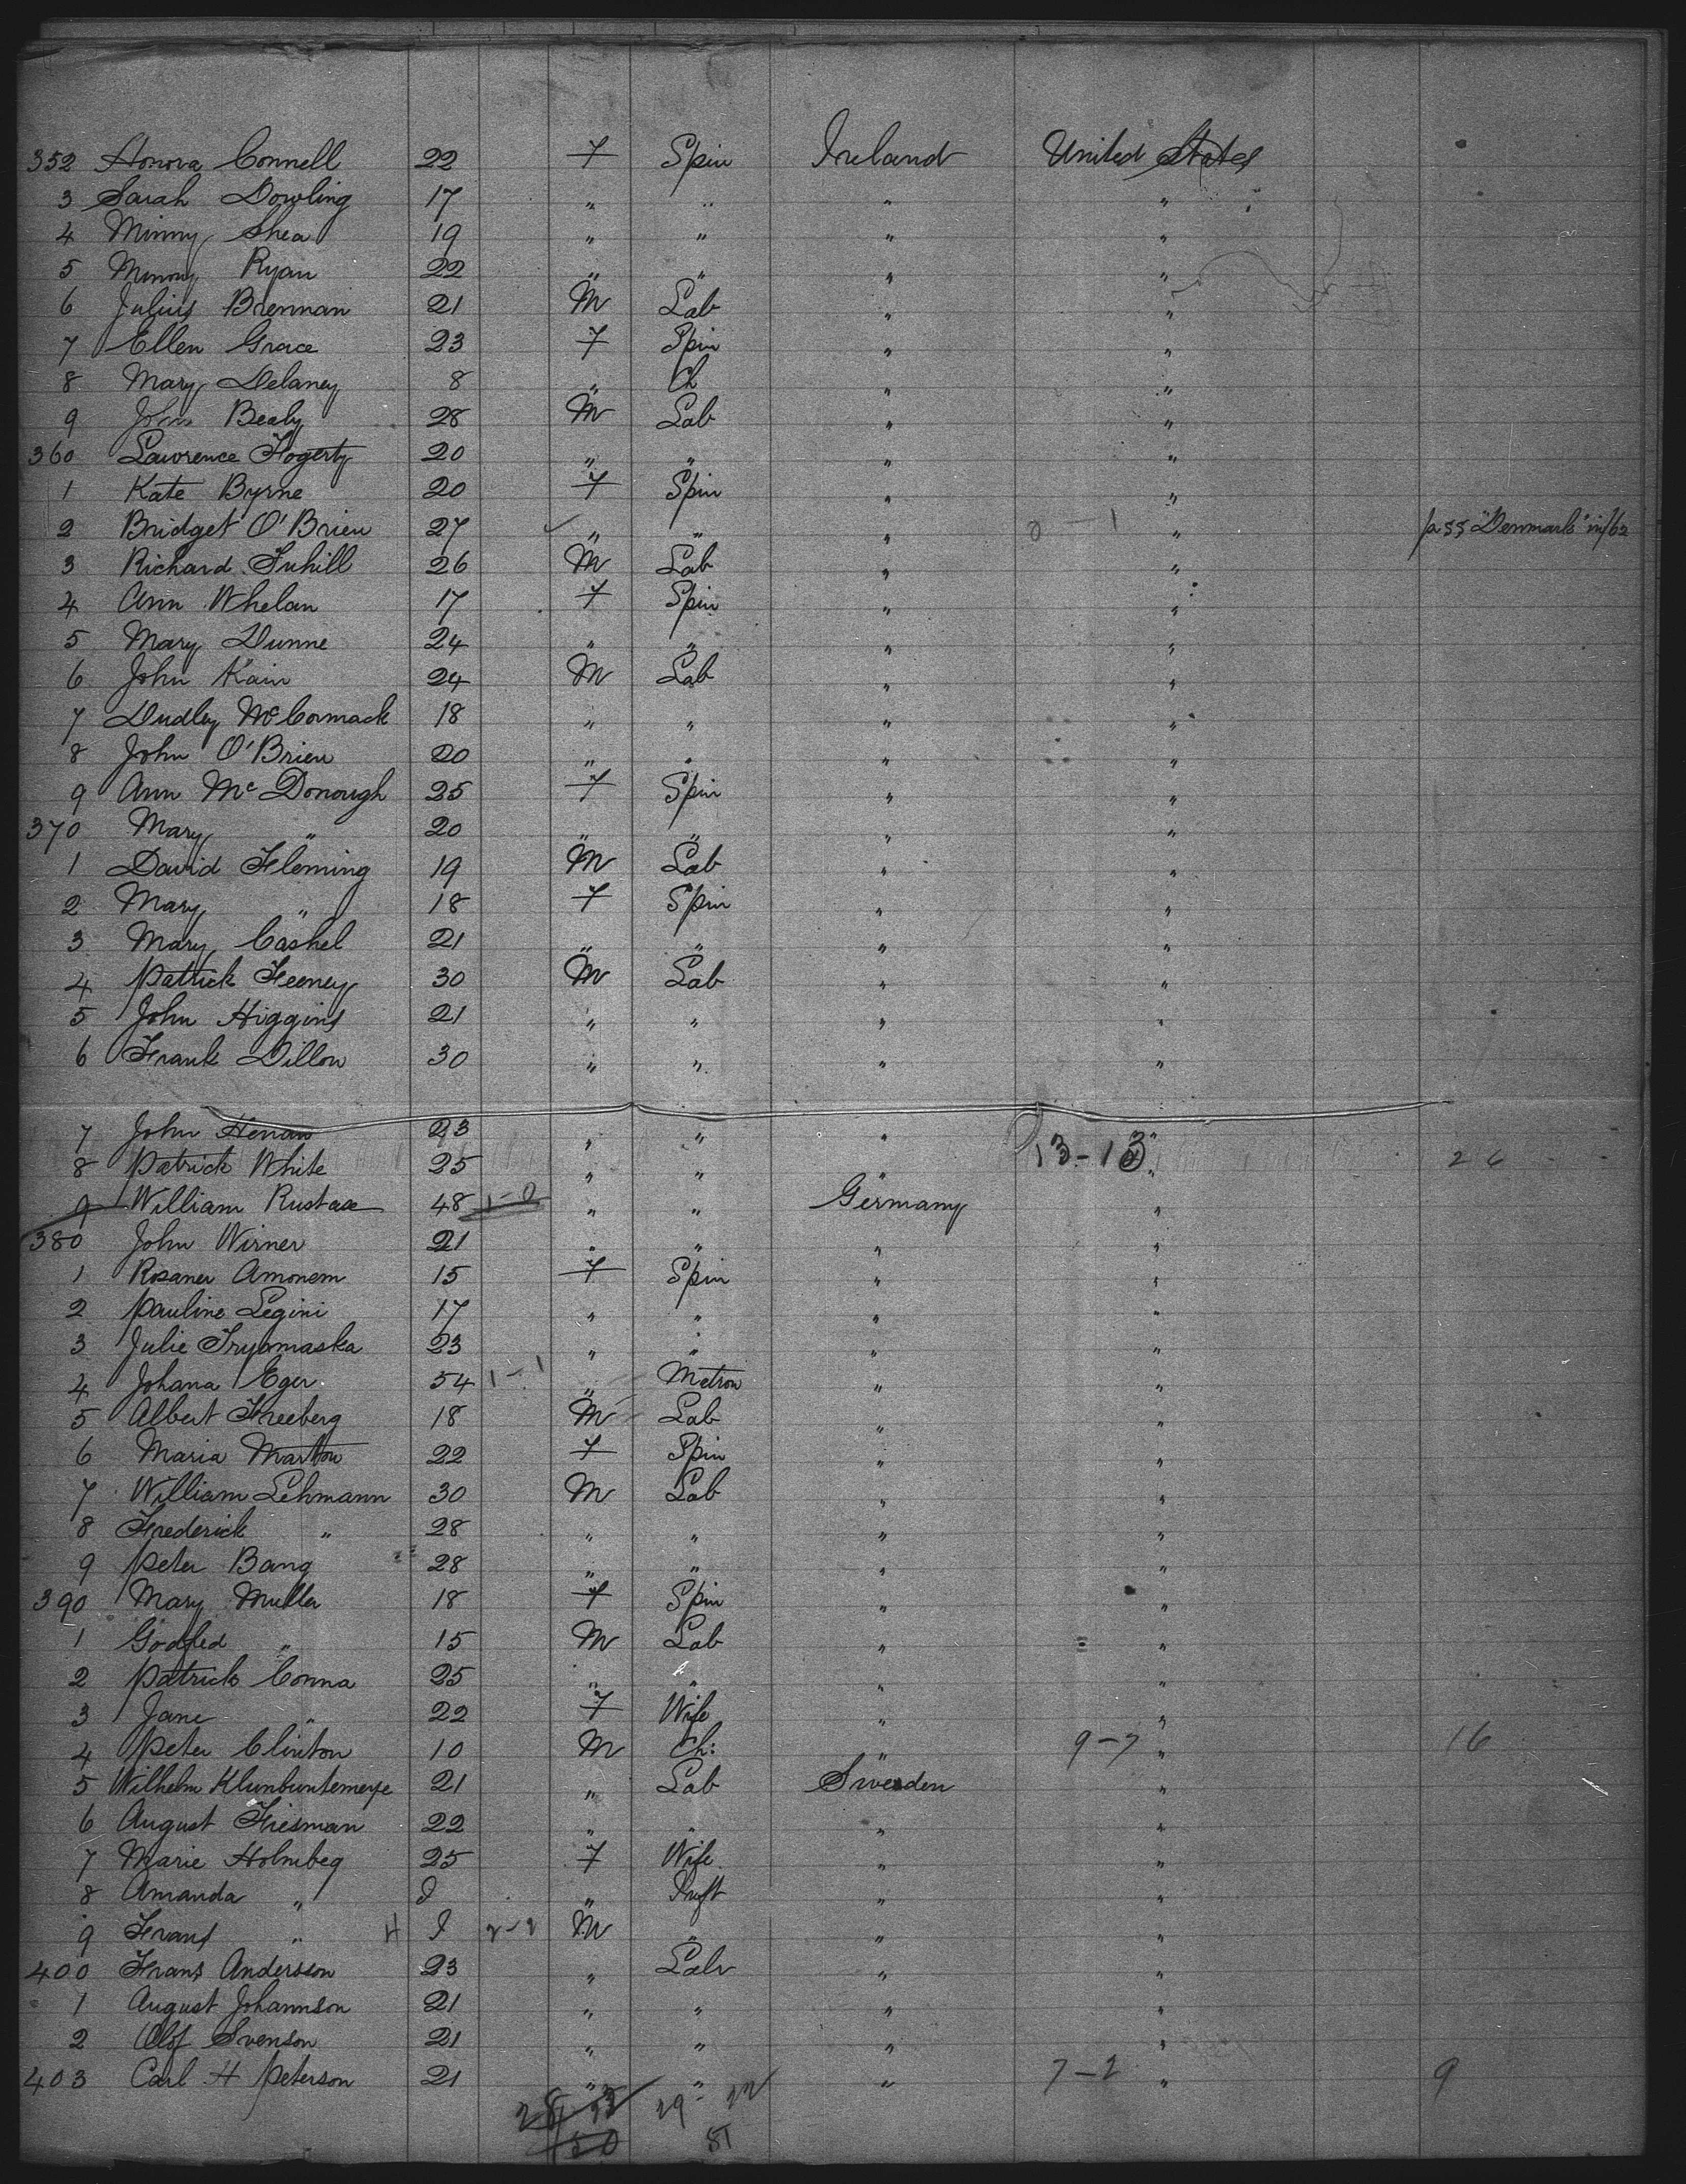 352 Honora Connell 22 F Spin Ireland United States
3 Sarah Dowling 17 " " " "
4 Minny Shea 19 " " " "
5 Minny Ryan 22 " " " "
6 Julius Brennan 21 M Lab " "
7 Ellen Grace 23 F Spin " "
8 Mary Delaney 8 " Ch " "
9 John Bealy 28 M Lab " "
360 Lawrence Fogerty 20 " " " "
1 Kate Byrne 20 F Spin " "
2 Bridget O'Brien 27 " " " 0-1 " p SS "Denmark"
3 Richard 26 M Lab " "
4 Ann Whelan 17 F Spin " "
5 Mary Dunne 24 " " " "
6 John Kain 24 M Lab " "
7 Dudley McCormack 18 " " " "
8 John O'Brien 20 " " " "
9 Ann McDonough 25 F Spin " "
370 Mary " 20 " " " "
1 David Fleming 19 M Lab " "
2 Mary " 18 F Spin " "
3 Mary Cashel 21 " " " "
4 Patrick Feeney 30 M Lab " "
5 John Higgins 21 " " " "
6 Frank Dillon 30 " " " "
7 John 23 " " " "
8 Patrick White 25 " " " 13-13 " 26
9 William Rustaa 48 1-0 " " Germany "
380 John Wirner 21 " " " "
1 Rosaner Amonem 15 F Spin " "
2 Pauline Legini 17 " " " "
3 Julie 23 " " " "
4 Johana Eger 54 1-1 " Matron " "
5 Albert Freeberg 18 M Lab " "
6 Maria Marton 22 F Spin " "
7 William Lehmann 30 M Lab " "
8 Frederick " 28 " " " "
9 Peter Bang 28 " " " "
390 Mary Muller 18 F Spin " "
1 Godfred " 15 M Lab " "
2 Patrick Conna 25 " " " "
3 Jane " 22 F Wife " "
4 Peter Clinton 10 M Ch: " 9-7 " 16
5 Wilhelm 21 " Lab Sweden "
6 August Friesman 22 " " " "
7 Marie Holmbeg 25 F Wife " "
8 Amanda " I " Inft " "
9 Frans " H I 2-2 M " " "
400 Frans Andersson 23 " Labr " "
1 August Johannson 21 " " " "
2 Olof Svenson 21 " " " "
403 Carl H Peterson 21 " " " 7-2 " 9
29 22
50 51